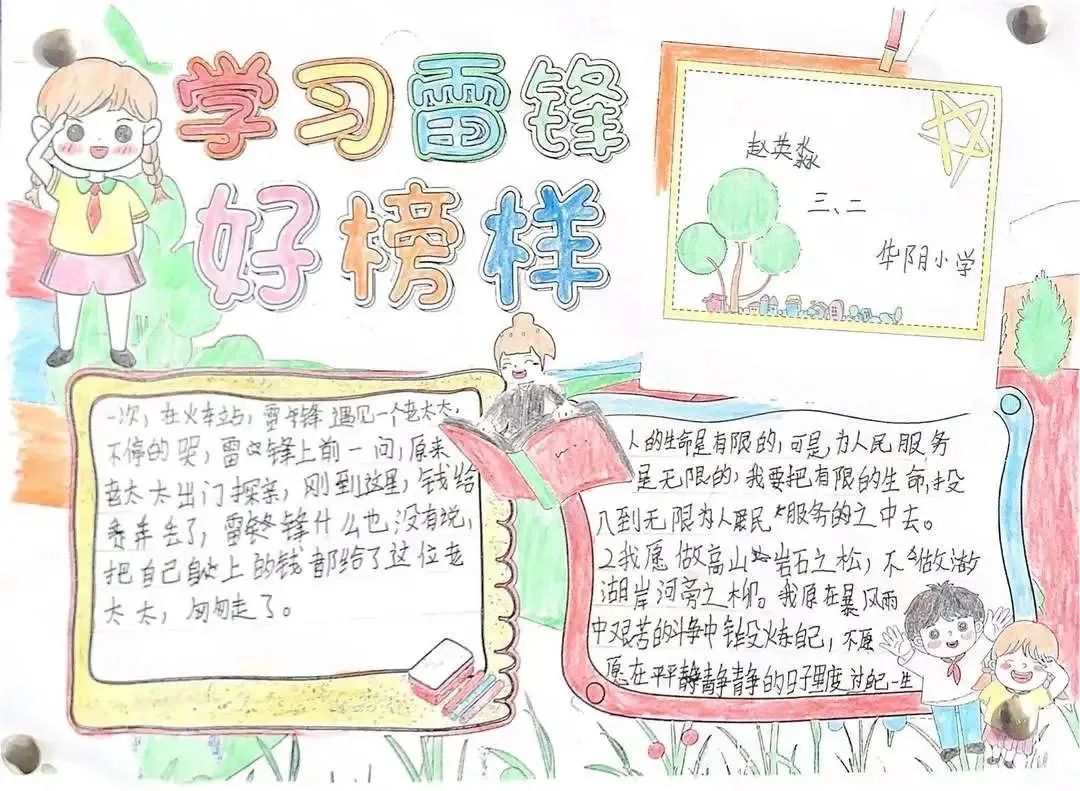 学习雷锋
好榜样
赵英淼
三、二
华阴小学
一次，在火车站，雷锋遇见一个老太太，
不停的哭，雷锋上前一问，原来
老太太出门探亲，刚到这里，钱给
弄丢了，雷锋什么也没有说，
把自己身上的钱都给了这位老
太太，匆匆走了。
人的生命是有限的，可是，为人民服务
是无限的，我要把有限的生命，投
入到无限为人民服务的之中去。
2我愿做高山岩石之松，不做
湖岸河旁之柳。我愿在暴风雨
中艰苦的斗争中锻炼自己，不愿
愿在平静静静的日子里度过自己一生